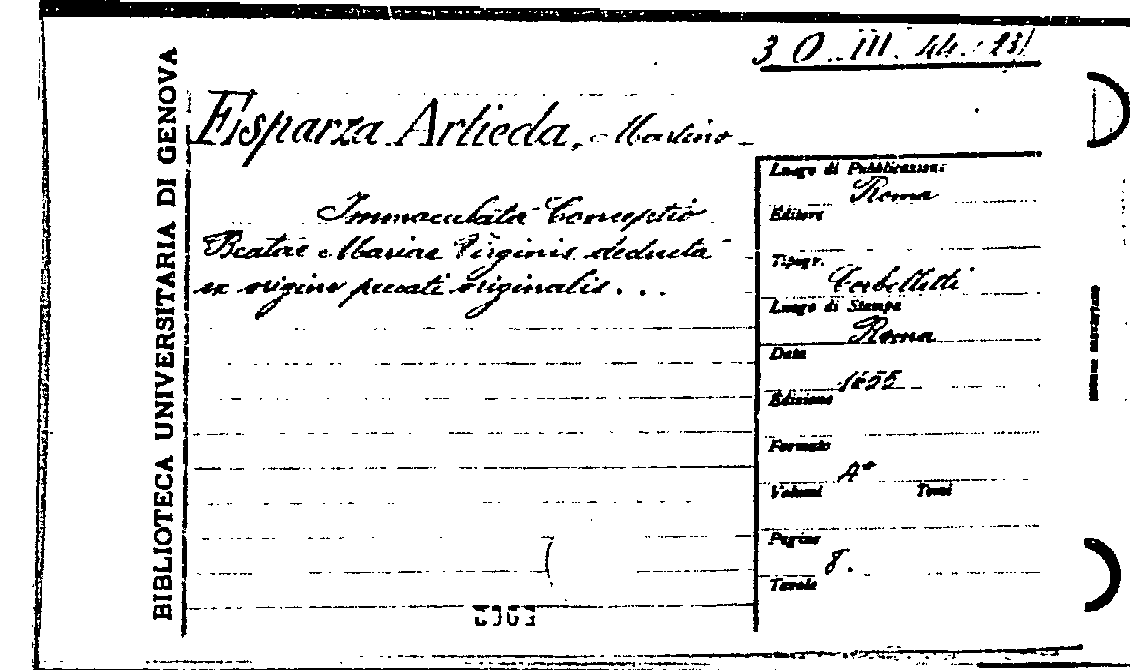 3 O. III. 44. 23/
BIBLIOTECA UNIVERSITARIA DI GENOVA
Esparza Artieda, Martino
Immaculata Conceptio
Beatae Mariae Virginis deducta
ex origine peccati originalis...
Luogo di Pubblicazioni
Roma
Editore
Tipogr.
Corbelletti
Luogo di Stampa
Roma
Data
1655
Edizione
Formato
4°
Volumi Tomi
Pagine
8.
Tavole